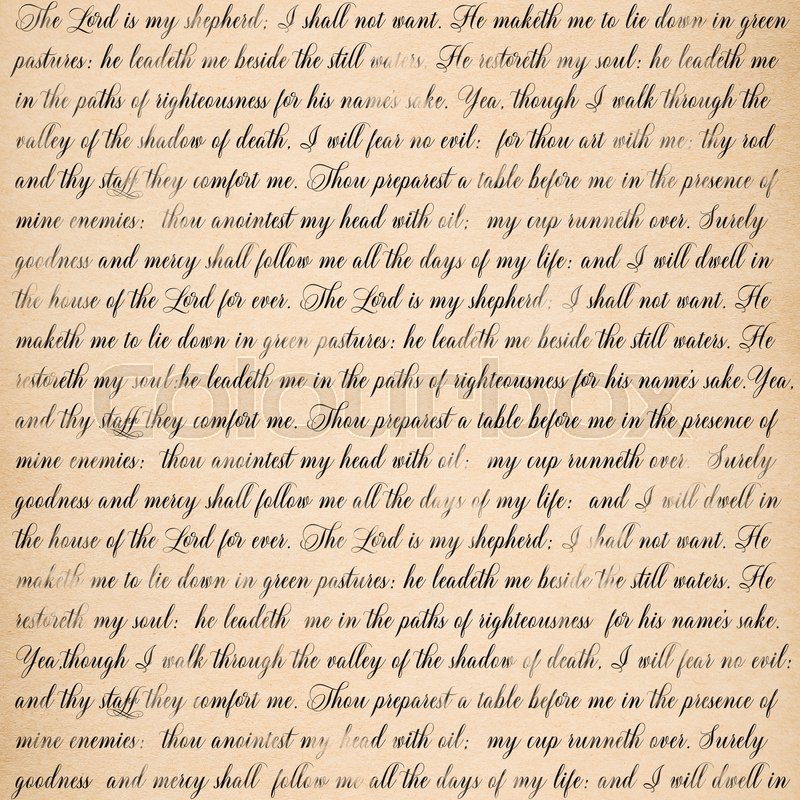 The Lord is my shepherd; I shall not want. He maketh me to lie down in green
pastures: he leadeth me beside the still waters. He restoreth my soul: he leadeth me
in the paths of righteousness for his name's sake. Yea, though I walk through the
valley of the shadow of death, I will fear no evil: for thou art with me; thy rod
and thy staff they comfort me. Thou preparest a table before me in the presence of
mine enemies: thou anointest my head with oil; my cup runneth over. Surely
goodness and mercy shall follow me all the days of my life: and I will dwell in
the house of the Lord for ever. The Lord is my shepherd; I shall not want. He
maketh me to lie down in green pastures: he leadeth me beside the still waters. He
restoreth my soul:he leadeth me in the paths of righteousness for his name's sake.Yea,
and thy staff they comfort me. Thou preparest a table before me in the presence of
colourbox
mine enemies: thou anointest my head with oil; my cup runneth over. Surely
goodness and mercy shall follow me all the days of my life: and I will dwell in
the house of the Lord for ever. The Lord is my shepherd; I shall not want. He
maketh me to lie down in green pastures: he leadeth me beside the still waters. He
restoreth my soul: he leadeth me in the paths of righteousness for his name's sake.
Yea,though I walk through the valley of the shadow of death, I will fear no evil:
and thy staff they comfort me. Thou preparest a table before me in the presence of
mine enemies: thou anointest my head with oil; my cup runneth over. Surely
goodness and mercy shall follow me all the days of my life: and I will dwell in